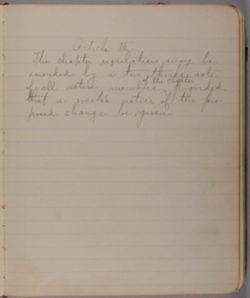 Article
The chapter regulations may be
amended by a two thirds vote
of all active members of the chapter, provided
that a week's notice of the pro-
posed change be given.